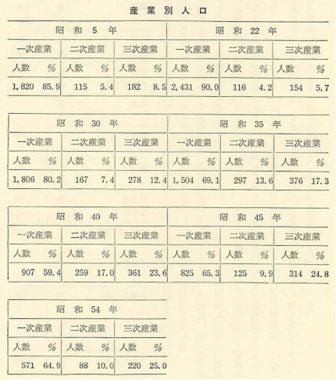 産業別人口
昭和5年 昭和22年
一次産業 二次産業 三次産業 一次産業 二次産業 三次産業
人数 % 人数 % 人数 % 人数 % 人数 % 人数 %
1,820 85.9 115 5.4 182 8.5 2,431 90.0 116 4.2 154 5.7
昭和30年 昭和35年
一次産業 二次産業 三次産業 一次産業 二次産業 三次産業
人数 % 人数 % 人数 % 人数 % 人数 % 人数 %
1,806 80.2 167 7.4 278 12.4 1,504 69.1 297 13.6 376 17.3
昭和40年 昭和45年
一次産業 二次産業 三次産業 一次産業 二次産業 三次産業
人数 % 人数 % 人数 % 人数 % 人数 % 人数 %
907 59.4 259 17.0 361 23.6 825 65.3 125 9.9 314 24.8
昭和54年
一次産業 二次産業 三次産業
人数 % 人数 % 人数 %
571 64.9 88 10.0 220 25.0